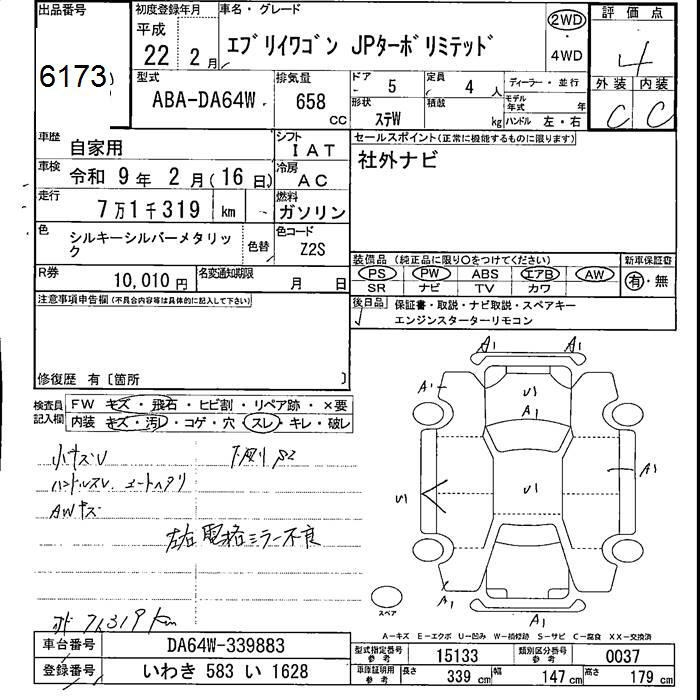 出品番号
6173
初度登録年月
平成
22 2 月
車名・グレード
エブリイワゴン JPターボリミテッド
2WD
・
4WD
評価点
4
外装 内装
C C
型式
ABA-DA64W
排気量
658 CC
ドア 5
定員 4 人
形状 ステW
積載 kg
ディーラー・並行
モデル年式 年
ハンドル 左・右
車歴 自家用
シフト IAT
車検 令和 9 年 2 月 (16 日)
冷房 AC
走行 7万1千319 km
燃料 ガソリン
色 シルキーシルバーメタリック
色替
色コード Z2S
R券 10,010 円
名変通知期限 月 日
セールスポイント(正常に機能するものに限ります)
社外ナビ
装備品 (純正品に限り○をつけてください)
PS PW ABS エアB AW
SR ナビ TV カワ
新車保証書
有・無
後日品 保証書・取説・ナビ取説・スペアキー
エンジンスターターリモコン
注意事項申告欄(不具合内容等は具体的に記入して下さい)
修復歴 有〔箇所 〕
検査員記入欄
FW キズ・飛石・ヒビ割・リペア跡・×要
内装 キズ・汚レ・コゲ・穴・スレ・キレ・破レ
小キズU
ハンドルスレ
AWキズ
左右電格ミラー不良
71319km
A1 A1
A1
U1
A1
U1
U1
A1
A1
A1
スペア
A-キズ E-エクボ U-凹み W-補修跡 S-サビ C-腐食 XX-交換済
車台番号 DA64W-339883
登録番号 いわき 583 い 1628
型式指定番号 参考 15133
類別区分番号 参考 0037
車庫証明用 参考 長さ 339 cm 幅 147 cm 高さ 179 cm